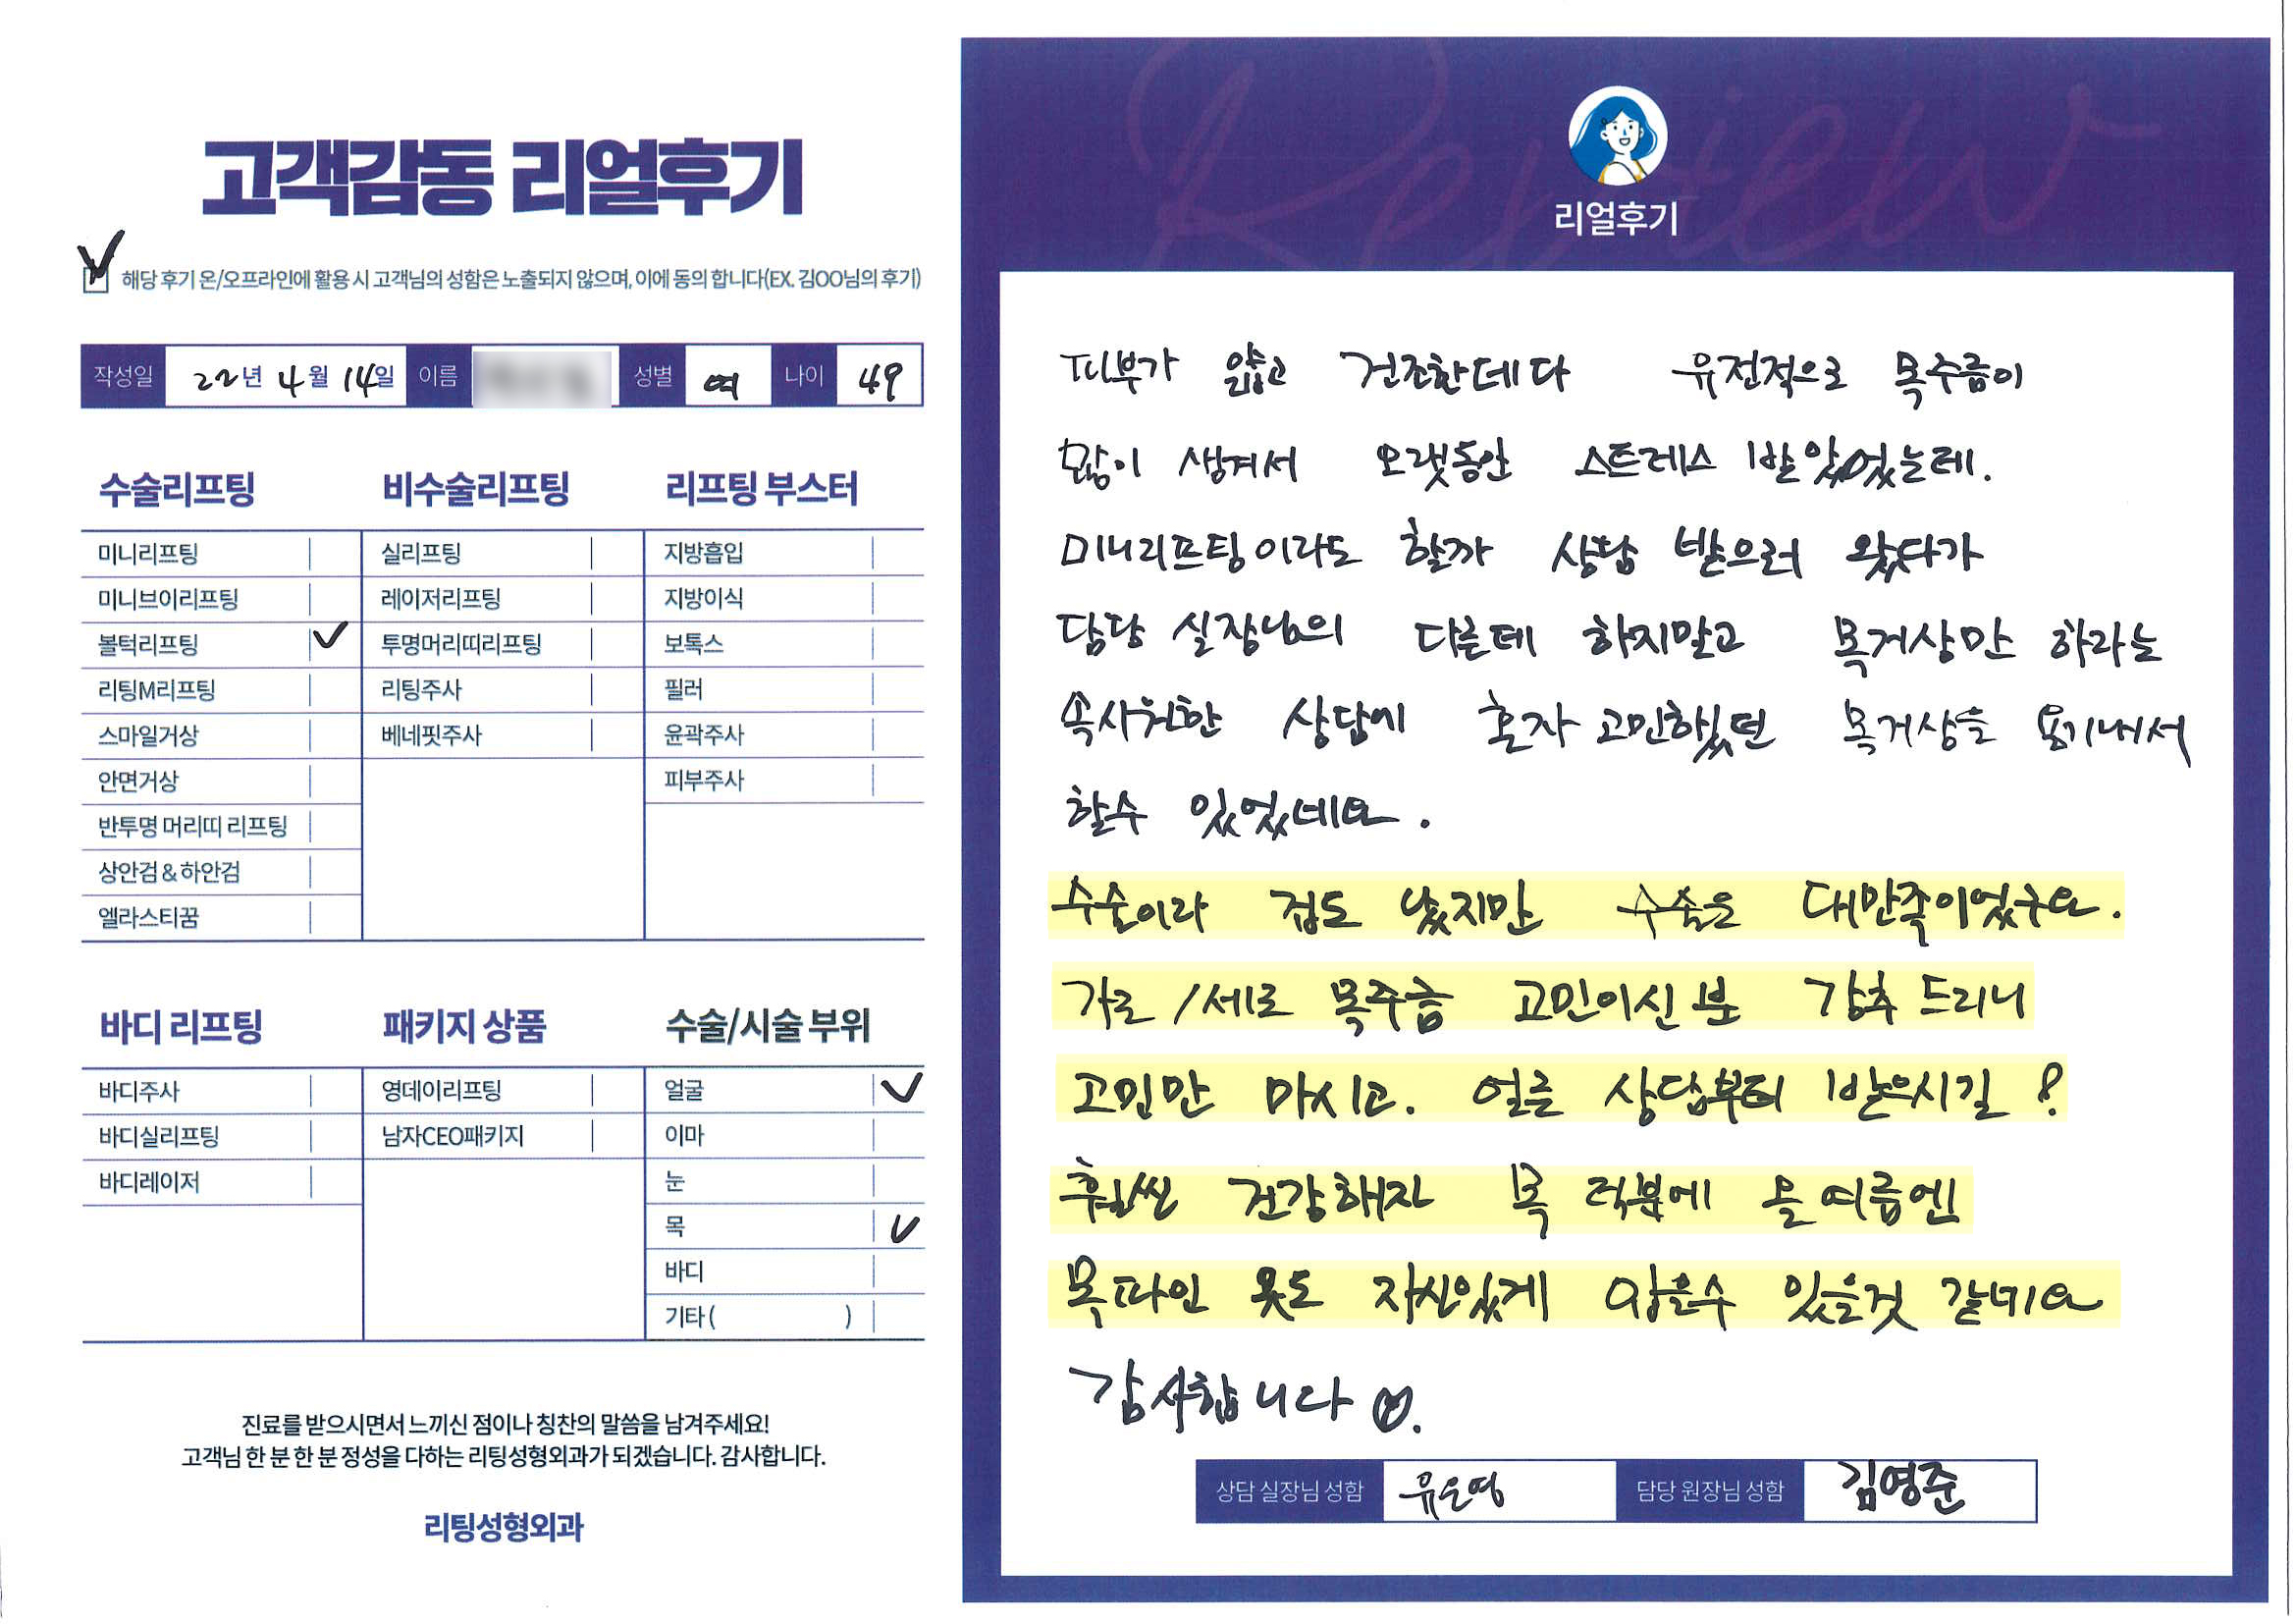 고객감동 리얼후기
해당 후기 온/오프라인에 활용 시 고객님의 성함은 노출되지 않으며, 이에 동의 합니다(EX. 김OO님의 후기)
작성일 22년 4월 14일 이름 성별 여 나이 49
수술리프팅
미니리프팅
미니브이리프팅
볼턱리프팅
리팅M리프팅
스마일거상
안면거상
반투명 머리띠 리프팅
상안검 & 하안검
엘라스티꿈
비수술리프팅
실리프팅
레이저리프팅
투명머리띠리프팅
리팅주사
베네핏주사
리프팅 부스터
지방흡입
지방이식
보톡스
필러
윤곽주사
피부주사
바디 리프팅
바디주사
바디실리프팅
바디레이저
패키지 상품
영데이리프팅
남자CEO패키지
수술/시술 부위
얼굴
이마
눈
목
바디
기타 ( )
진료를 받으시면서 느끼신 점이나 칭찬의 말씀을 남겨주세요!
고객님 한 분 한 분 정성을 다하는 리팅성형외과가 되겠습니다. 감사합니다.
리팅성형외과
Review
리얼후기
피부가 얇고 건조한데다 유전적으로 목주름이
많이 생겨서 오랫동안 스트레스 받았었는데.
미니리프팅이라도 할까 상담 받으러 왔다가
담당 실장님의 다른데 하지말고 목거상만 하라는
속시원한 상담에 혼자 고민했던 목거상을 용기내서
할수 있었네요.
수술이라 겁도 났지만 수술은 대만족이었구요.
가로/세로 목주름 고민이신 분 강추 드리니
고민만 마시고. 얼른 상담부터 받으시길!
훨씬 건강해진 목 덕분에 올여름엔
목파인 옷도 자신있게 입을수 있을것 같네요
감사합니다
상담 실장님 성함 유은영 담당 원장님 성함 김영준